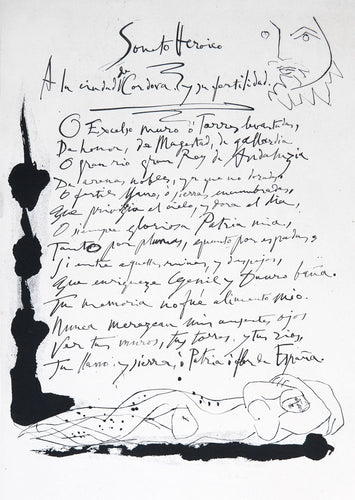 Soneto Heroico
A la ciudad de Cordova y su fertilidad.
O Excelso muro ó Torres levantadas,
De honor, de Magestad, de gallardia
O gran rio gran Rey de Andaluzia
De arenas nobles, ya que no doradas
O fertil llano, ó sierras encumbradas,
Que privilegia el cielo, y dora el dia,
O siempre gloriosa Patria mia,
Tanto por plumas, quanto por espadas,
Si entre aquellas ruinas, y despojos,
Que enriqueze Genil y Dauro baña.
Tu memoria no fue alimento mio.
Nunca merezcan mis ausentes ojos
Ver tus muros, tus torres, y tus rios,
Tu llano, y sierra, ó Patria ó flor de España.